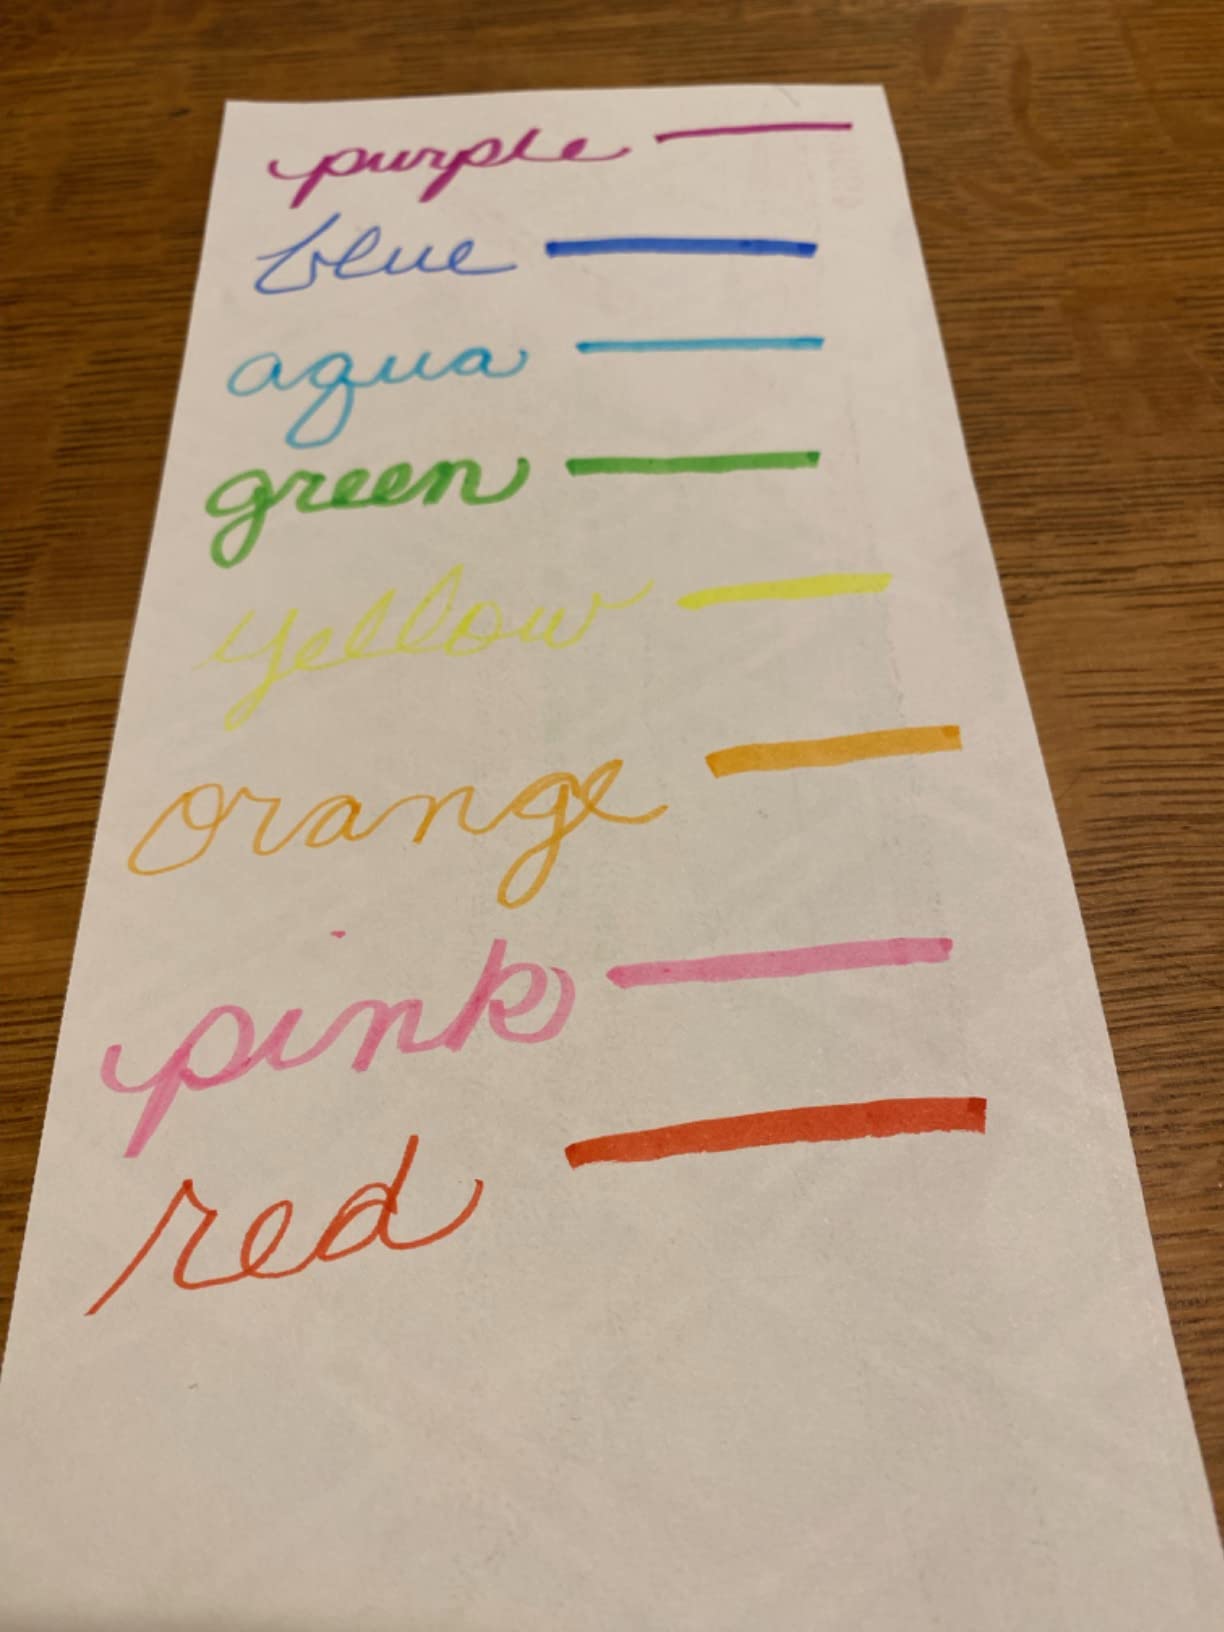 purple
blue
aqua
green
yellow
orange
pink
red